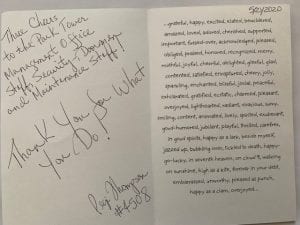 Three Cheers
to the Park Tower
Management Office
Staff, Security, Doormen
and Maintenance Staff!
Thank You for What
You Do!
Peg Thompson
#4508
5/27/2020
...grateful, happy, excited, elated, bewildered,
amazed, loved, adored, cherished, supported,
important, fussed-over, acknowledged, pleased,
obliged, praised, honored, recognized, merry,
mirthful, joyful, cheerful, delighted, gleeful, glad,
contented, satisfied, enraptured, cheery, jolly,
sparkling, enchanted, blissful, jovial, proactive,
exhilarated, gratified, ecstatic, charmed, pleasant,
overjoyed, lighthearted, radiant, vivacious, sunny,
smiling, content, animated, lively, spirited, exuberant,
good-humored, jubilant, playful, thrilled, carefree,
in good spirits, happy as a lark, beside myself,
jazzed up, bubbling over, tickled to death, happy-
go-lucky, in seventh heaven, on cloud 9, walking
on sunshine, high as a kite, forever in your debt,
embarrassed, unworthy, pleased as punch,
happy as a clam, overjoyed...